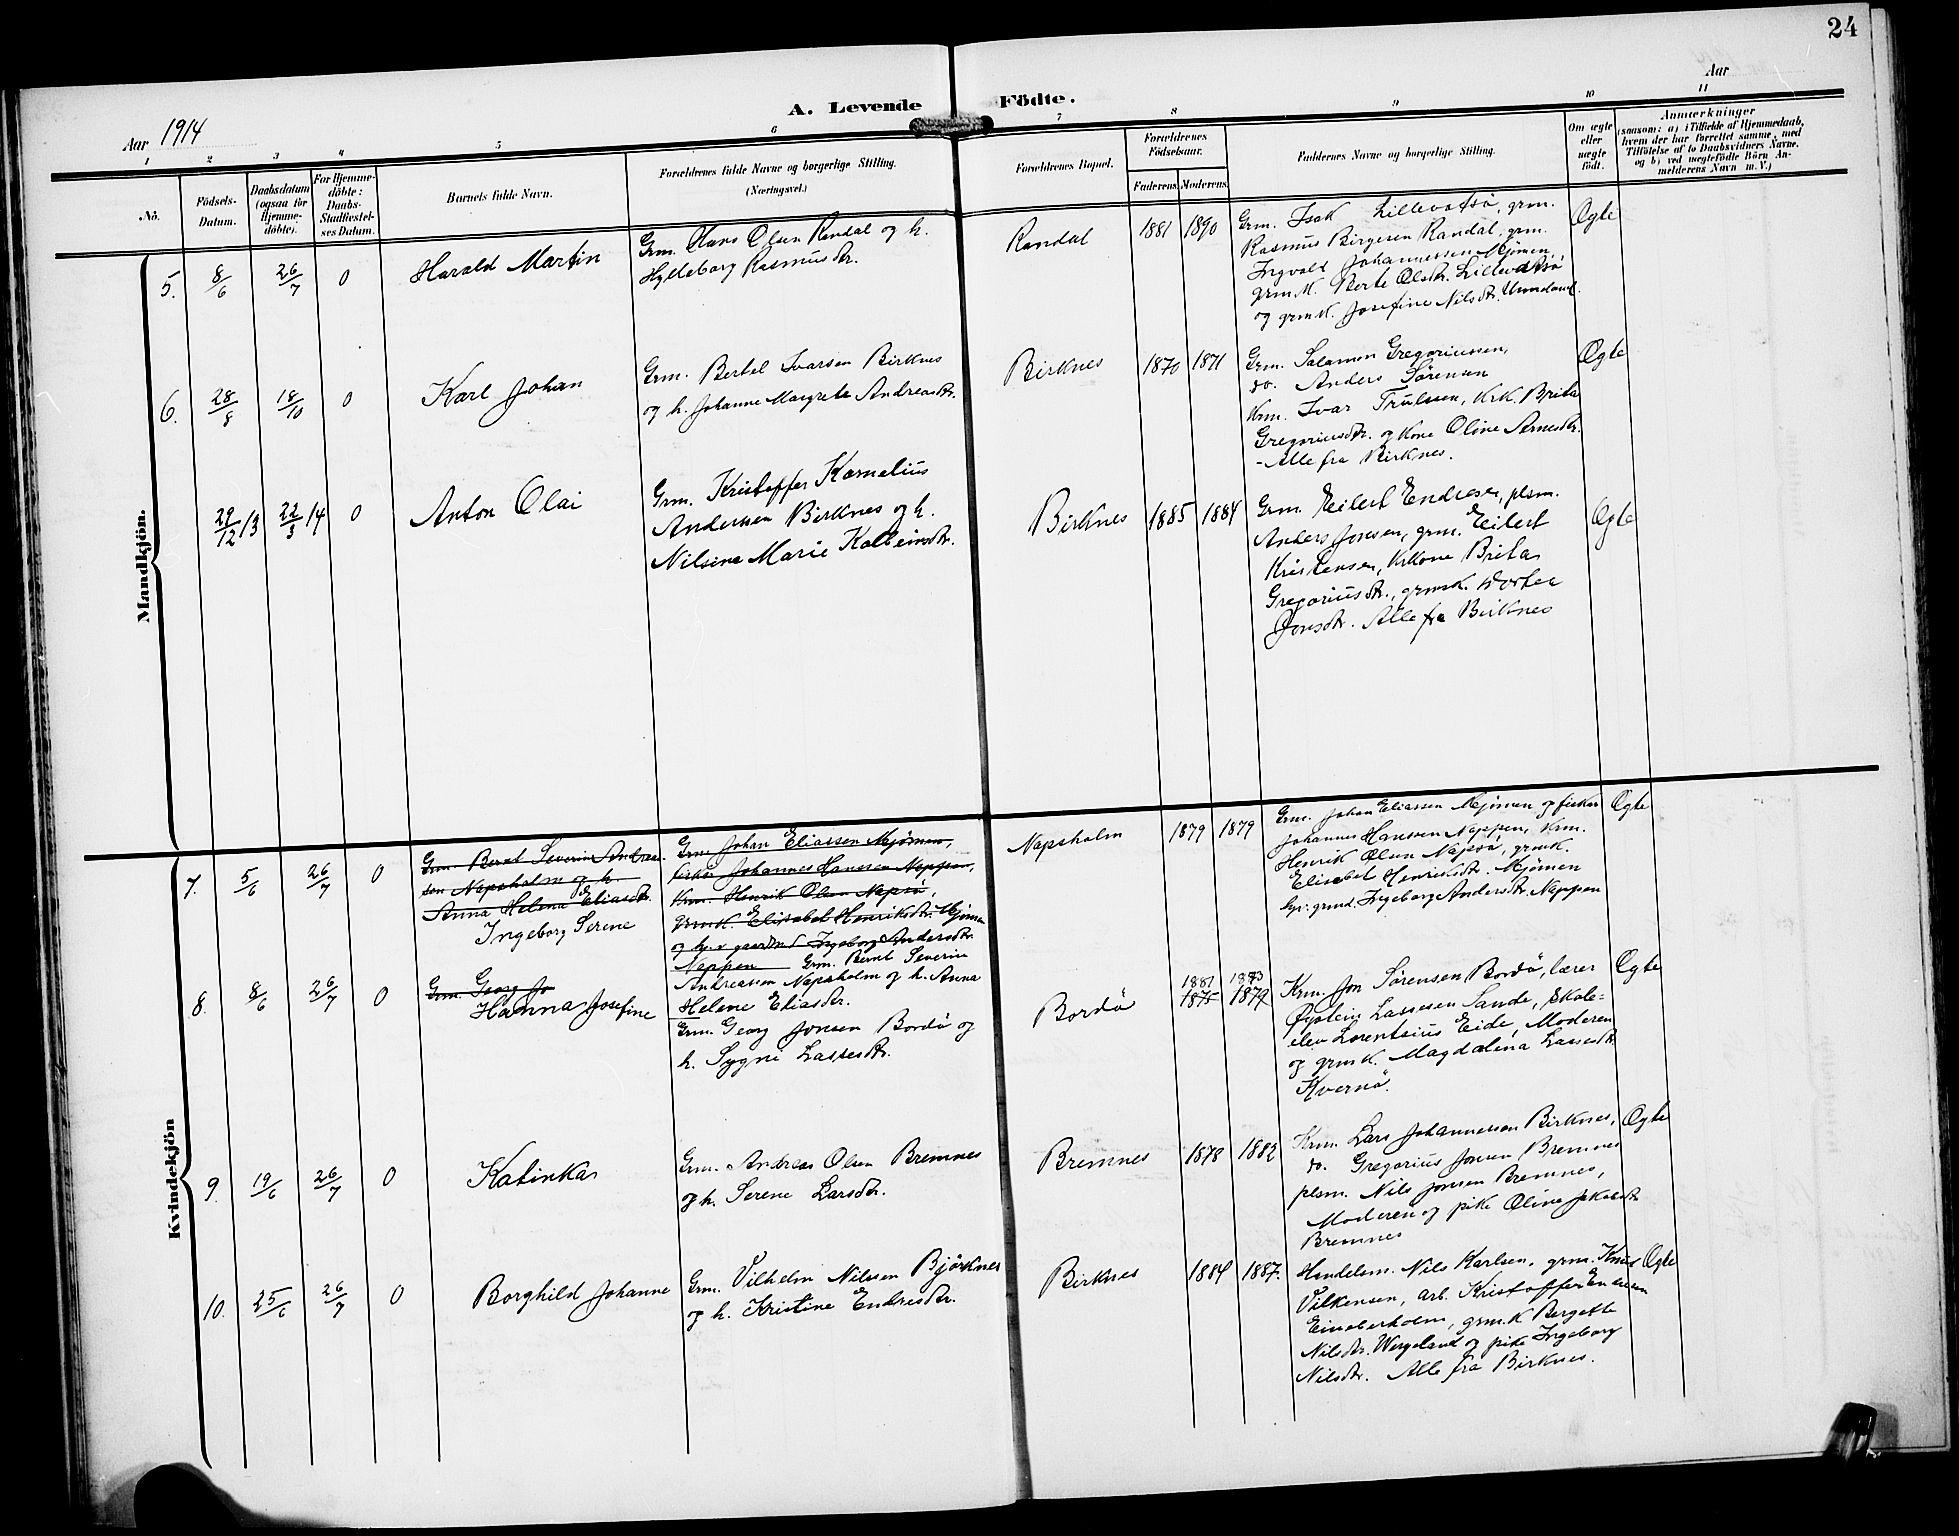 24
Aar 1914
A. Levende Födte.
Aar
1 2 3 4 5 6 7 8 9 10 11
No.
Födsels-
Datum.
Daabsdatum
(ogsaa for
Hjemme-
döbte).
For Hjemme-
döbte:
Daabs-
Stadfæstel-
ses Datum.
Barnets fulde Navn.
Forældrenes fulde Navne og borgerlige Stilling.
(Næringsvei.)
Forældrenes Bopæl.
Forældrenes
Födselsaar.
Faderens. Moderens.
Faddernes Navne og borgerlige Stilling.
Om ægte
eller
uægte
födt.
Anmærkninger
(saasom: a) i Tilfælde af Hjemmedaab,
hvem der har forrettet samme, med
Tilföielse af to Daabsvidners Navne.
og b) ved uægtefödte Börn An-
melderens Navn m. V.)
Mandkjön.
5. 8/6 26/7 0 Harald Martin
Grm. Hans Olsen Randal og h.
Hylleborg Rasmusdtr.
Randal 1881 1890
Grm. Isak Lillevatsö, grm.
Rasmus Birgesen Randal, grm.
Ingvald Johannessen Mjömen,
grmk. Berte Olsdtr. Lillevatsö
og grmk. Josefine Nilsdtr.
Ægte
6. 28/8 18/10 0 Karl Johan
Grm. Bertel Ivarsen Birknes
og h. Johanne Margrete Andreasdtr.
Birknes 1870 1871
Grm. Salamon Gregoriussen,
do. Anders Sørensen
Krm. Ivar Trulssen, Krk. Brita
Gregoriusdtr. og Kone Oline Arnesdtr.
- Alle fra Birknes.
Ægte
29/12 13 22/3 14 0 Anton Olai
Grm. Kristoffer Kornelius
Andersen Birknes og h.
Nilsine Marie Kolbeinsdtr.
Birknes 1885 1884
Grm. Eilert Endresen, plsm.
Anders Jonsen, grm. Eilert
Kristensen, Krkone Brita
Gregoriusdtr., grmsk. Dortea
Jonsdtr. Alle fra Birknes
Ægte
Kvindekjön
7. 5/6 26/7 0
Grm. Bernt Severin Andreas-
sen Napsholm og h.
Anna Helene Eliasdtr.
Ingeborg Serene
Grm. Johan Eliassen Mjömen,
fisker Johannes Hanssen Nappen,
Krm. Henrik Olsen Napsö,
grmk. Elisabet Henriksdtr. Mjömen
og
Ingeborg Andersdtr.
Nappen Grm. Bernt Severin
Andreassen Napsholm og h. Anna
Helene Eliasdtr.
Napsholm 1879 1879
Grm. Johan Eliassen Mjömen og fisker
Johannes Hanssen Nappen, Krm.
Henrik Olsen Napsö, grmk.
Elisabet Henriksdtr. Mjömen
Ingeborg Andersdtr. Nappen
Ægte
8. 8/6 26/7 0
Grm. Georg Jo
Hanna Josefine
Grm. Georg Jonsen Bordö og
h. Sygni Lassesdtr.
Bordö
1881 1883
1875 1879
Krm. Jon Sørensen Bordö, lærer
Øystein Lassesen Sande, Skole-
elev Lorentsius Eide, Moderen
og grmk. Magdalena Lassesdtr.
Kvernö.
Ægte
9. 19/6 26/7 0 Katinka
Grm. Andreas Olsen Bremnes
og h. Serene Larsdtr.
Bremnes 1878 1882
Krm. Lars Johannessen Birknes,
do. Gregorius Jonsen Bremnes
plsm. Nils Jonsen Bremnes,
Moderen og pike Oline Jakobsdtr.
Bremnes
Ægte
10. 25/6 26/7 0 Borghild Johanne
Grm. Vilhelm Nilssen Björknes
og h. Kristine Endresdtr.
Birknes 1884 1887.
Handelsm. Nils Karlsen, grm. Knud
Vilkensen, arb. Kristoffer Endresen
Eineberholm, grmk Bergette
Nilsdtr. Wergeland og pike Ingeborg
Nilsdtr. Alle fra Birknes.
Ægte